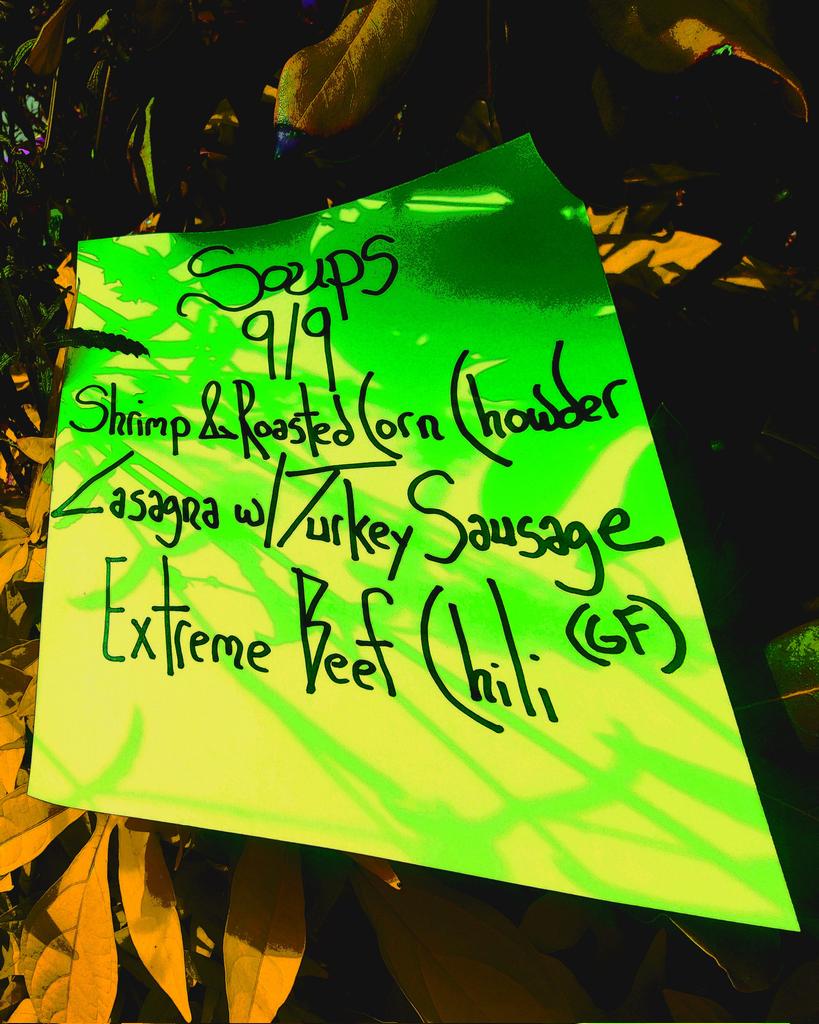 Soups
9/9
Shrimp & Roasted Corn Chowder
Lasagna w/ Turkey Sausage
Extreme Beef Chili (GF)